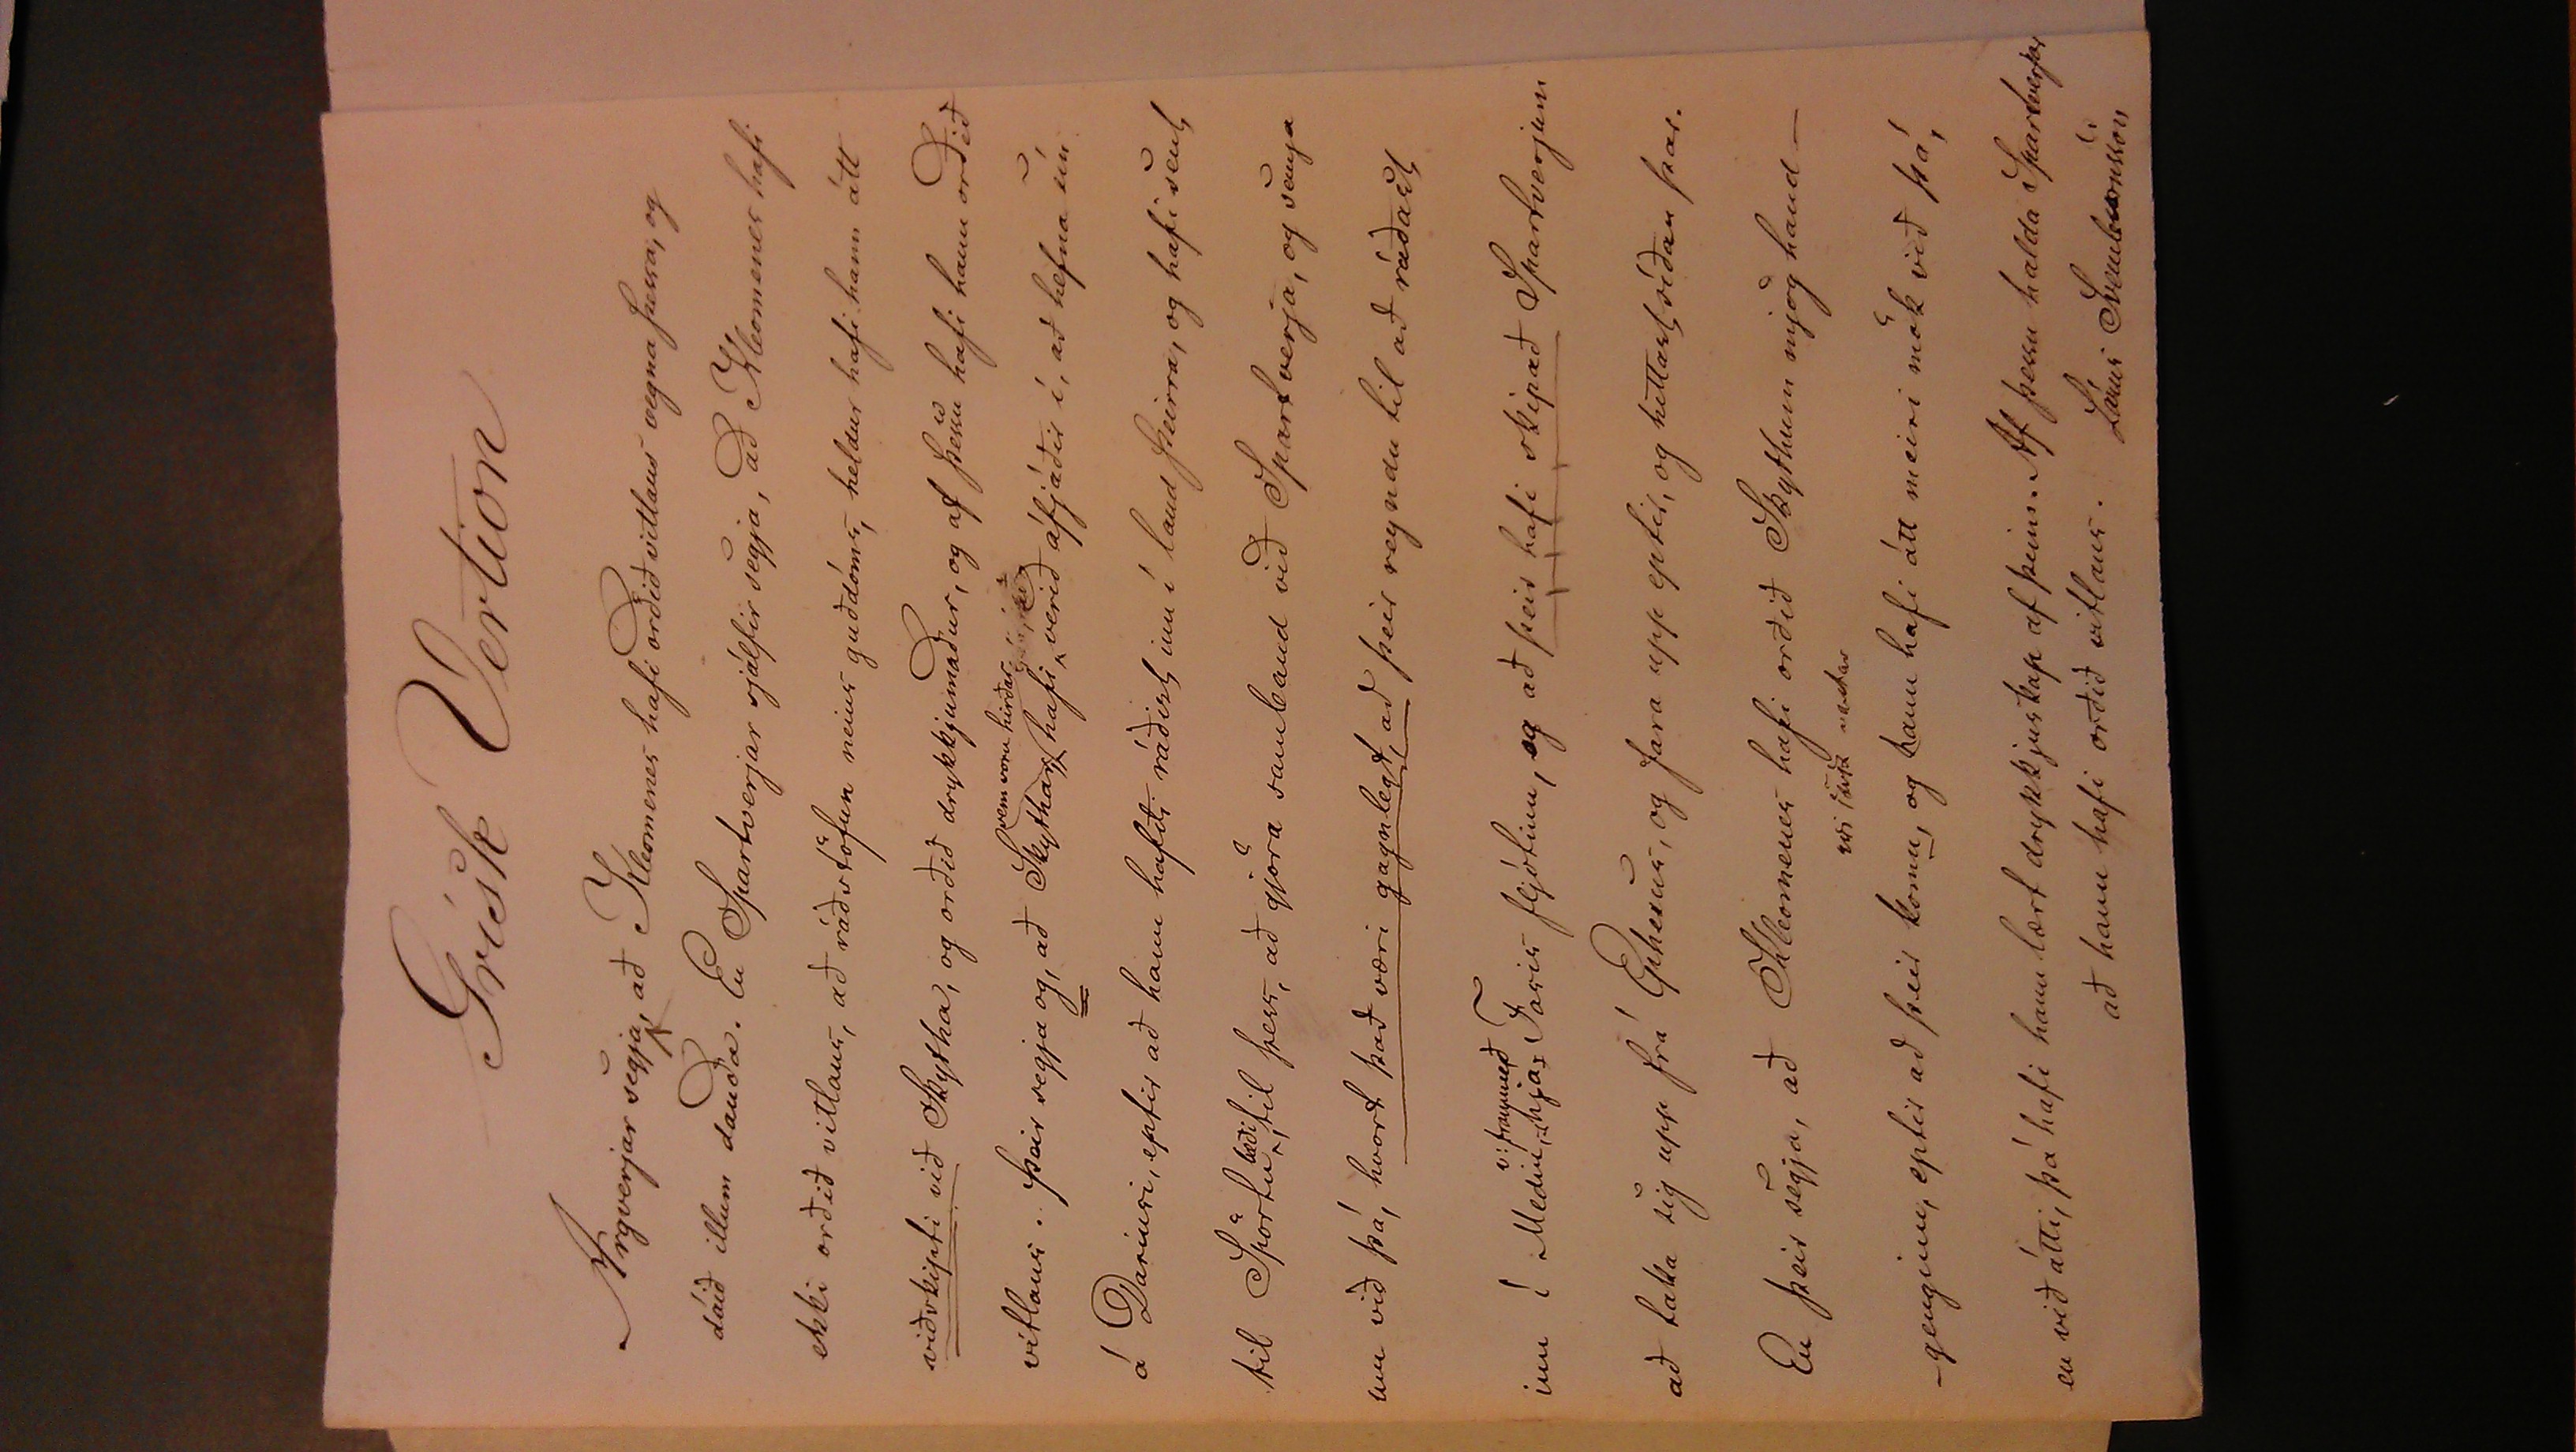 Grísk Vertion
Argverjar segja, að Kleomenes hafi orðið vitlaus vegna þessa, og
dáið illum dauða. En Spartverjar sjálfir segja, að Kleomenes hafi
ekki orðið vitlaus, að ráðstöfun neins guðdóms, heldur hafi hann átt
viðskipti við Skytha, og orðið drykkjumaður, og af þessu hafi hann orðið
sem von hirðar
vitlaus. Þeir segja og, að Skythar hafi verið áfjáðir í, að hefna sín
á Dariusi, eptir að hann hafði ráðist inn í land þeirra, og hafi sent
bæði
til Spörtu til þess, að gjöra samband við Spartverja, og semja
um við þá, hvort það væri gagnlegt, að þeir reyndu til að ráðast
fram með
inn í Mediu, hjá Fasis fljótinu, og að þeir hafi skipað Spartverjum
að taka sig upp frá Ephesus, og fara upp eptir, og hittast síðan þar.
En þeir segja, að Kleomenes hafi orðið Skythum mjög hand-
-genginn, eptir að þeir komu, og hann hafi átt meiri mök við þá,
en við átti, þá hafi hann lært drykkjuskap af þeim. Af þessu halda Spartverjar
að hann hafi orðið vitlaus. Lárus Sveinbjörnsson